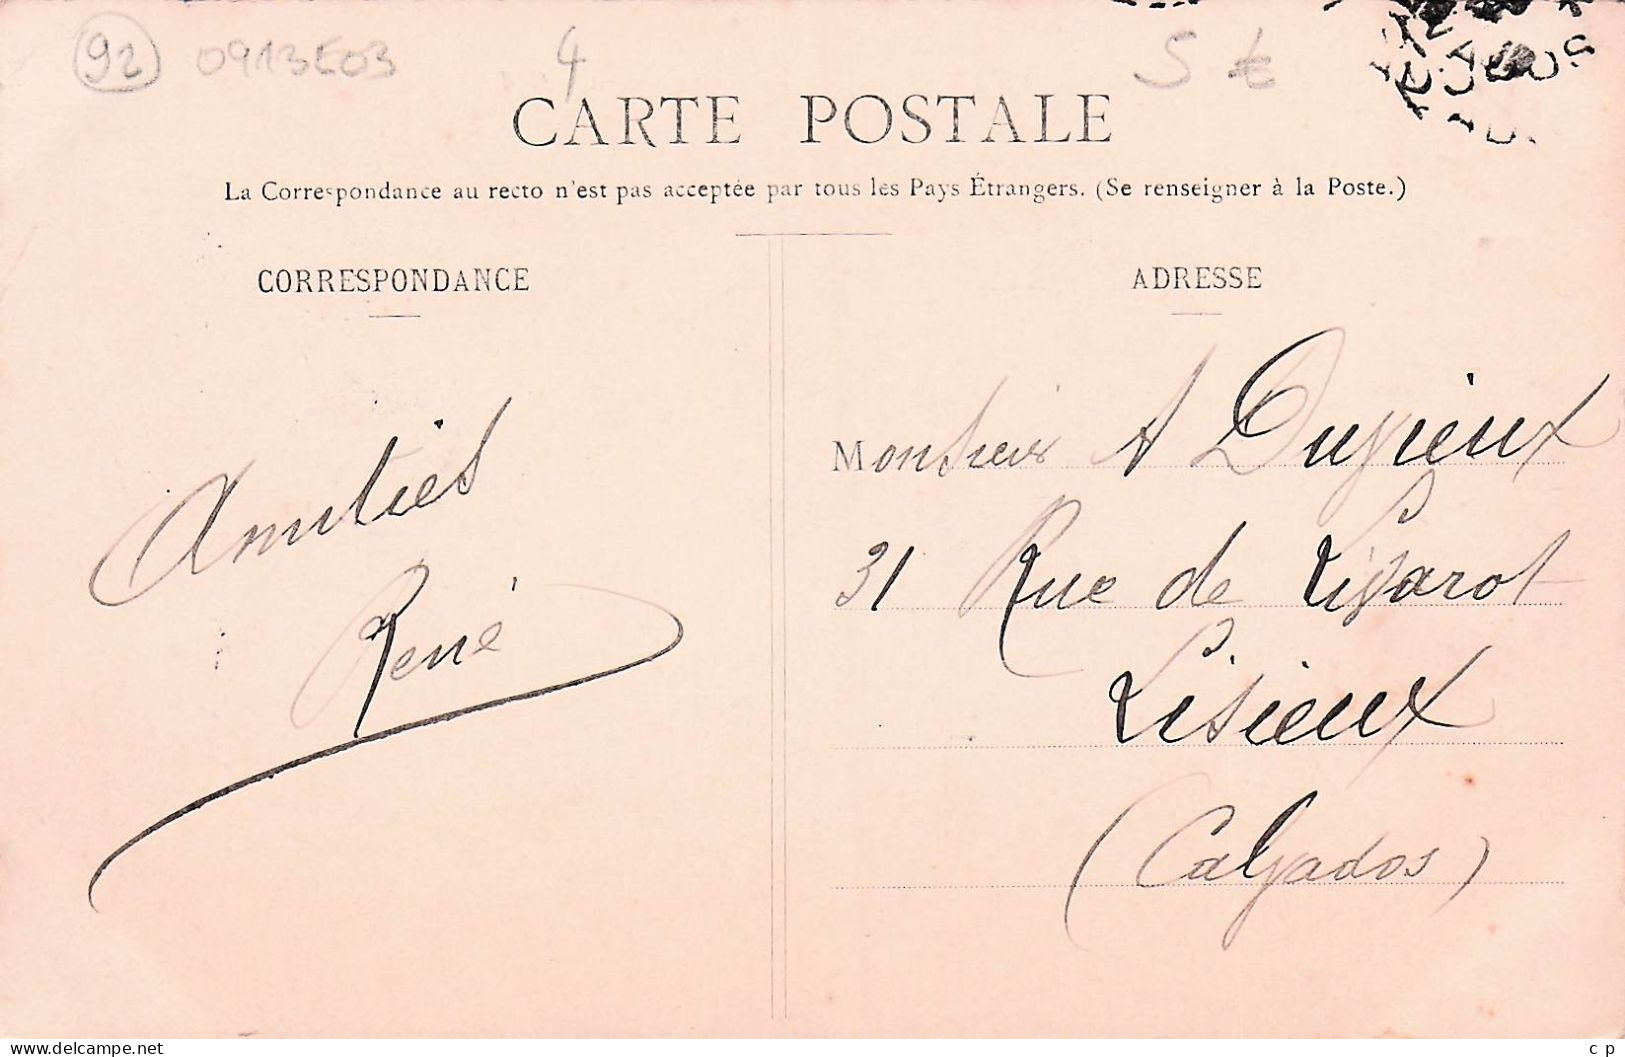 92 0913E03 4 5 €
CARTE POSTALE
La Correspondance au recto n'est pas acceptée par tous les Pays Étrangers. (Se renseigner à la Poste.)
CORRESPONDANCE
Amitiés
René
ADRESSE
Monsieur A
31 Rue de
Lisieux
(Calvados)
www.delcampe.net
c p